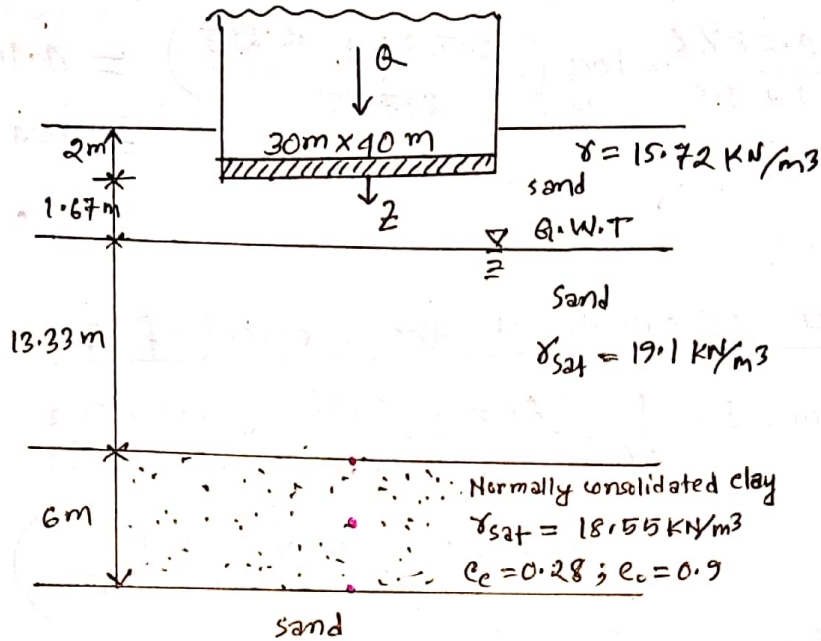 Q
2m
30m x 40 m
γ = 15.72 KN/m3
sand
1.67m
Z
G.W.T
Sand
γsat = 19.1 KN/m3
13.33m
Normally consolidated clay
6m
γsat = 18.55 KN/m3
Cc = 0.28 ; e₀ = 0.9
sand